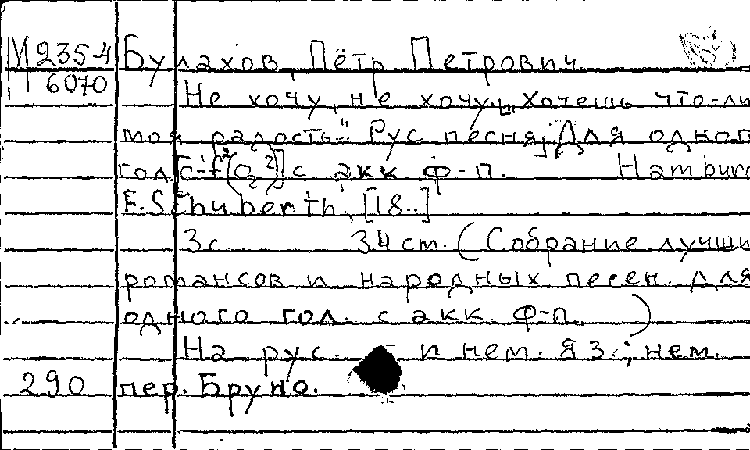 М 235-4 Булахов, Пётр Петрович
П 6070
Не хочу, не хочу, "Хочешь что-ли
моя радость". Рус песня, Для одног
гол. [c-f² (a²)] с акк ф-п. Hamburg
E. Schuberth, [18..]
3с 34 см. (Собрание лучши
романсов и народных песен для
одного гол. с акк. ф-п.)
На рус. - и нем. яз.; нем.
290 пер. Бруно.